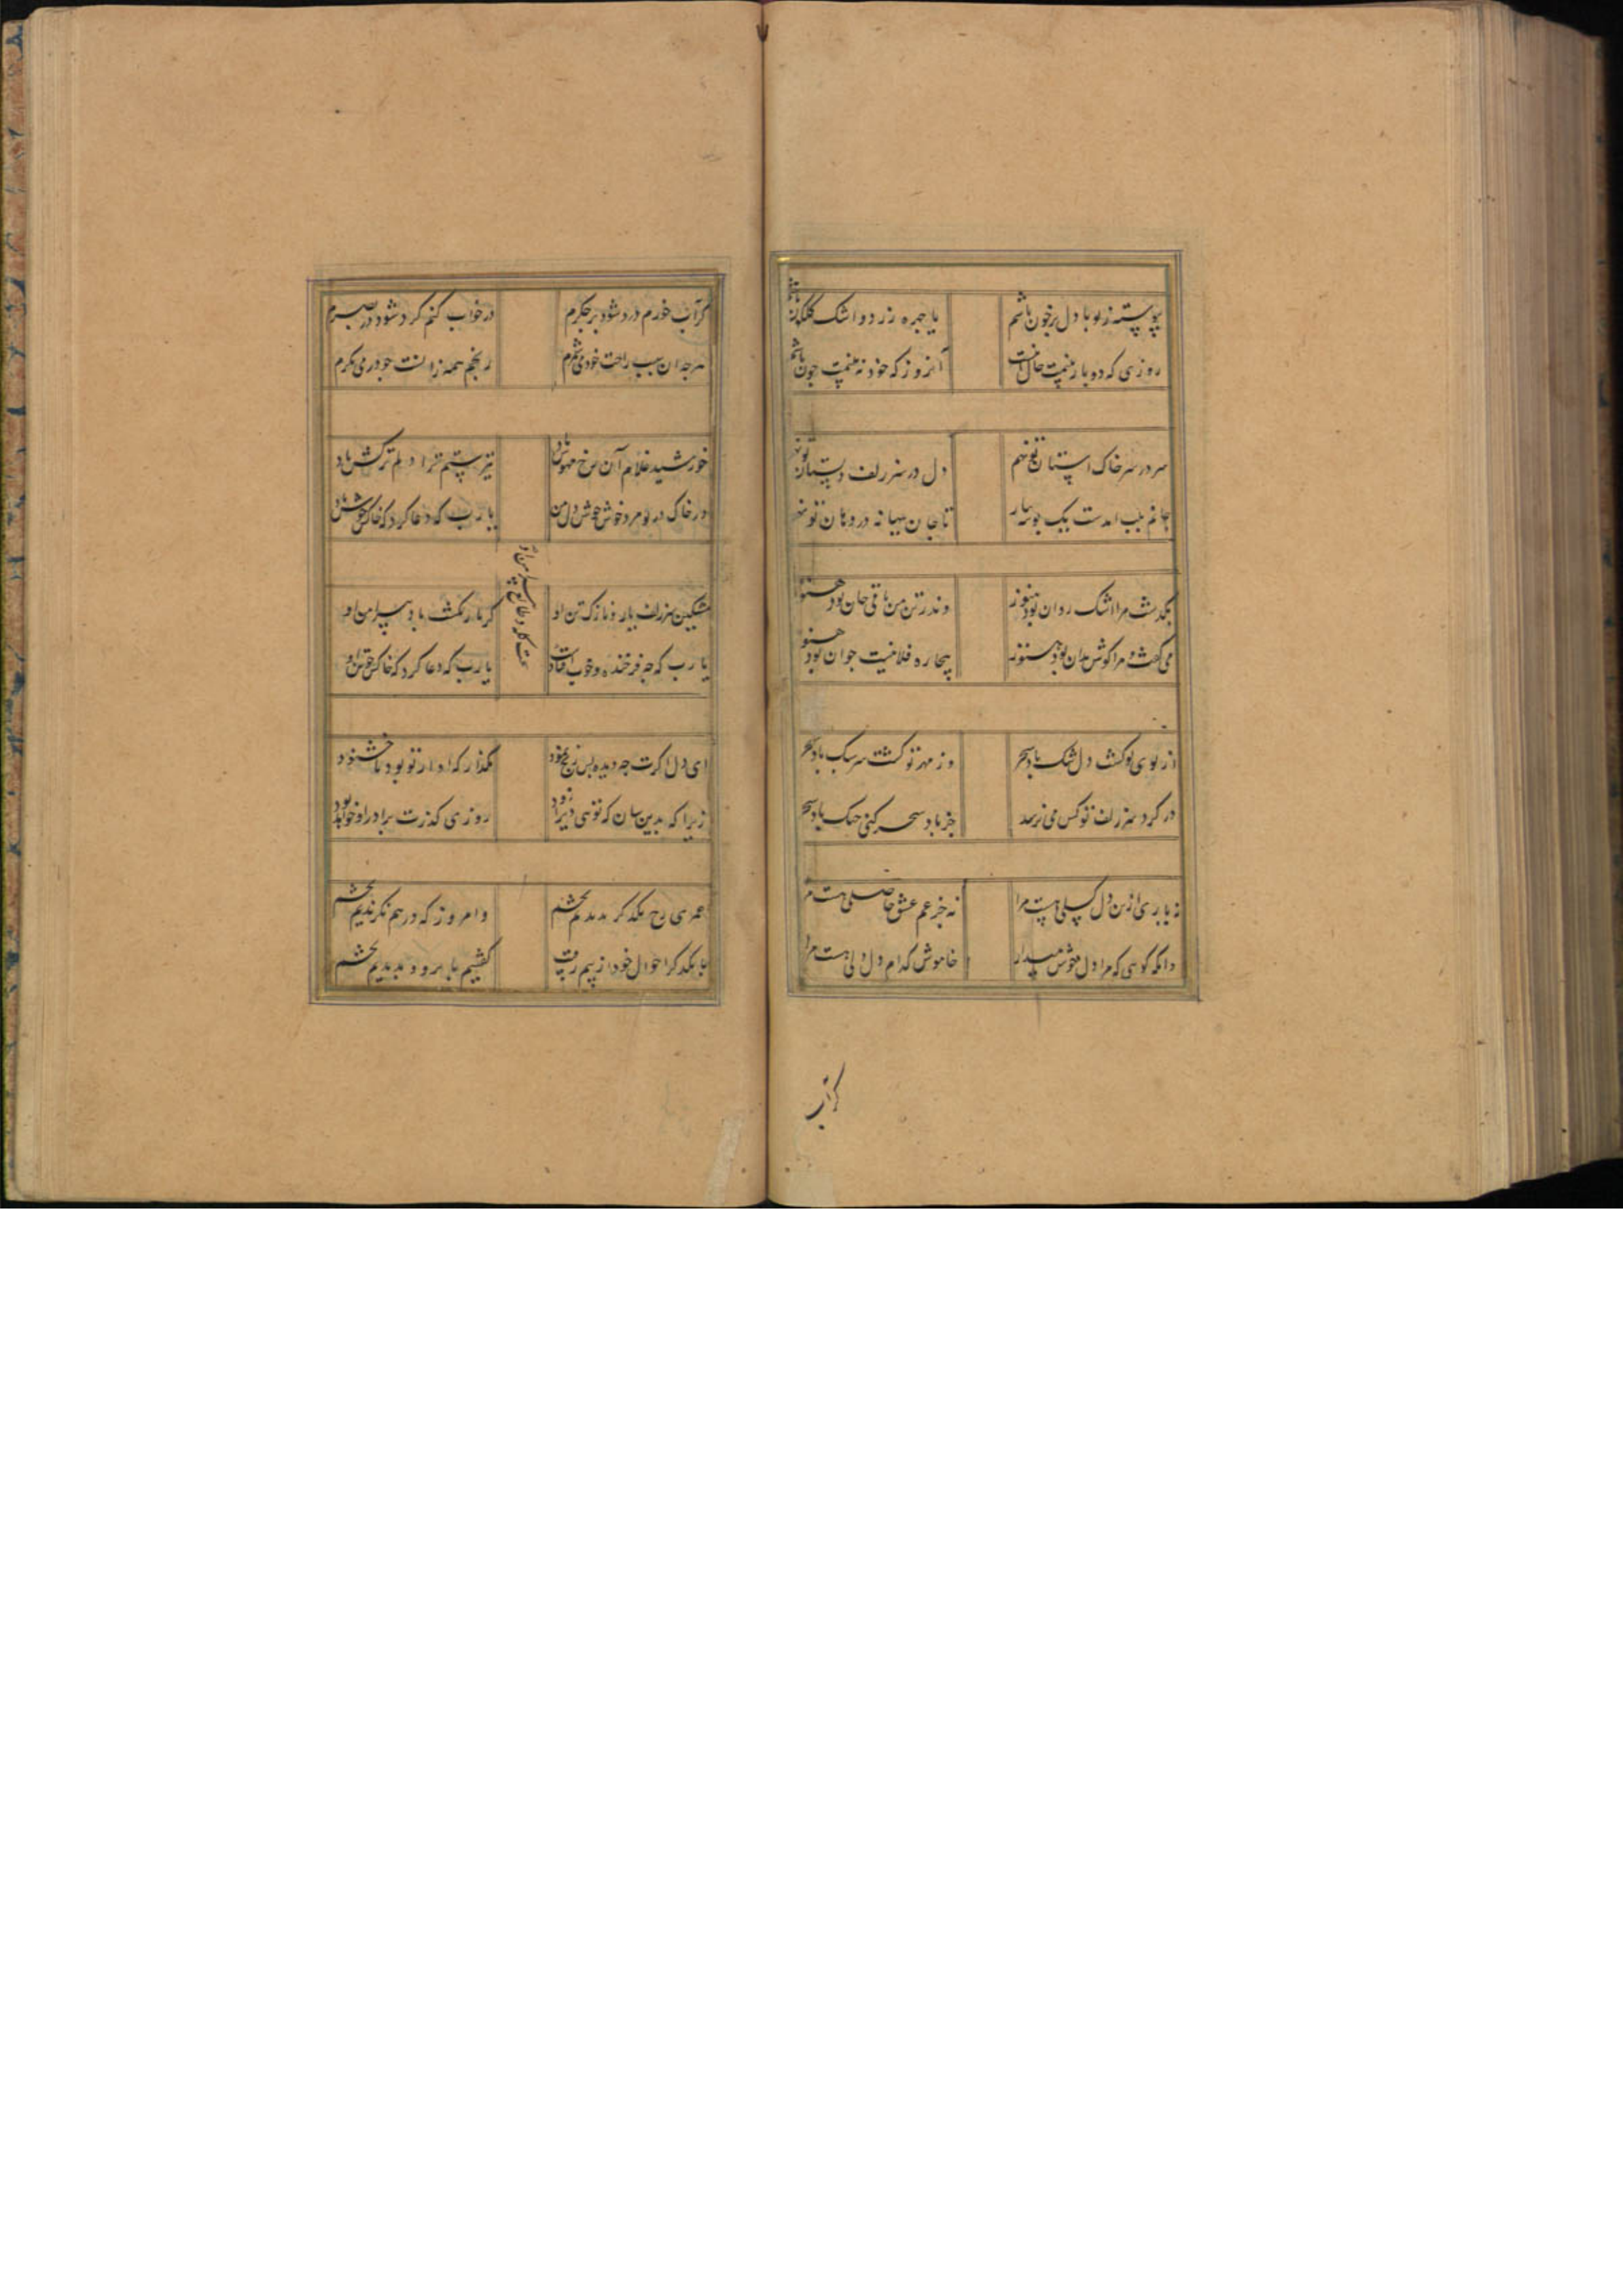 پیوسته ز تو با دل پر خون باشم با چهره زرد و اشک گلگون باشم
روزی که دو بار بینمت حال اینست آنروز که خود نه بینمت چون باشم
سر در سر خاک آستان تو نهم دل در سر زلف دلستان تو نهم
جانم بلب آمدست یک بوسه بیار تا جان ببهانه در دهان تو نهم
بگذشت مرا اشک روان بود هنوز وندر تن من باقی جان بود هنوز
می گفت و مرا گوش بدان بود هنوز بیچاره فلانیست جوان بود هنوز
از بوی تو گشت دل باد سحر وز مهر تو گشت سر سبک باد سحر
در گرد سر زلف تو کس می نرسد جز باد سحر کنی باد سحر
نه یاری ازین دل مرا نه جز غم عشق حاصلی هست مرا
وانگه گویی که مرا دل خوش میدار خاموش کدام دل دلی هست مرا
گر آب
گر آب خورم درد شود بر جگرم در خواب کنم گرد شود در بصرم
هر چه آن سبب راحت خود می شمرم رنجم همه زانست چو در می نگرم
خورشید غلام آن رخ مهوش باد تیر ستم ترا دلم ترکش باد
در خاک در تو مرد خوش خوش دل من یا رب که دعا کرد که خاکش خوش باد
مشکین سر زلف یار و نازک تن او گرمابه نگشت باد پیرامن او
یا رب که چه فرخنده و خوب افتادست یا رب که دعا کرد که خاکش
ای دل اگرت چه دیده بس رنج نمود بگذار که او از تو بود ناخشنود
زیرا که بدین سان که توئی دیر از زود روزی گذرت برادر او خواهد بود
عمری رخ یکدگر بدیدیم بچشم وامروز که در هم نگرندیم بچشم
با یکدگر احوال خود از بیم رقیب گفتیم بابرو و بدیدیم بچشم